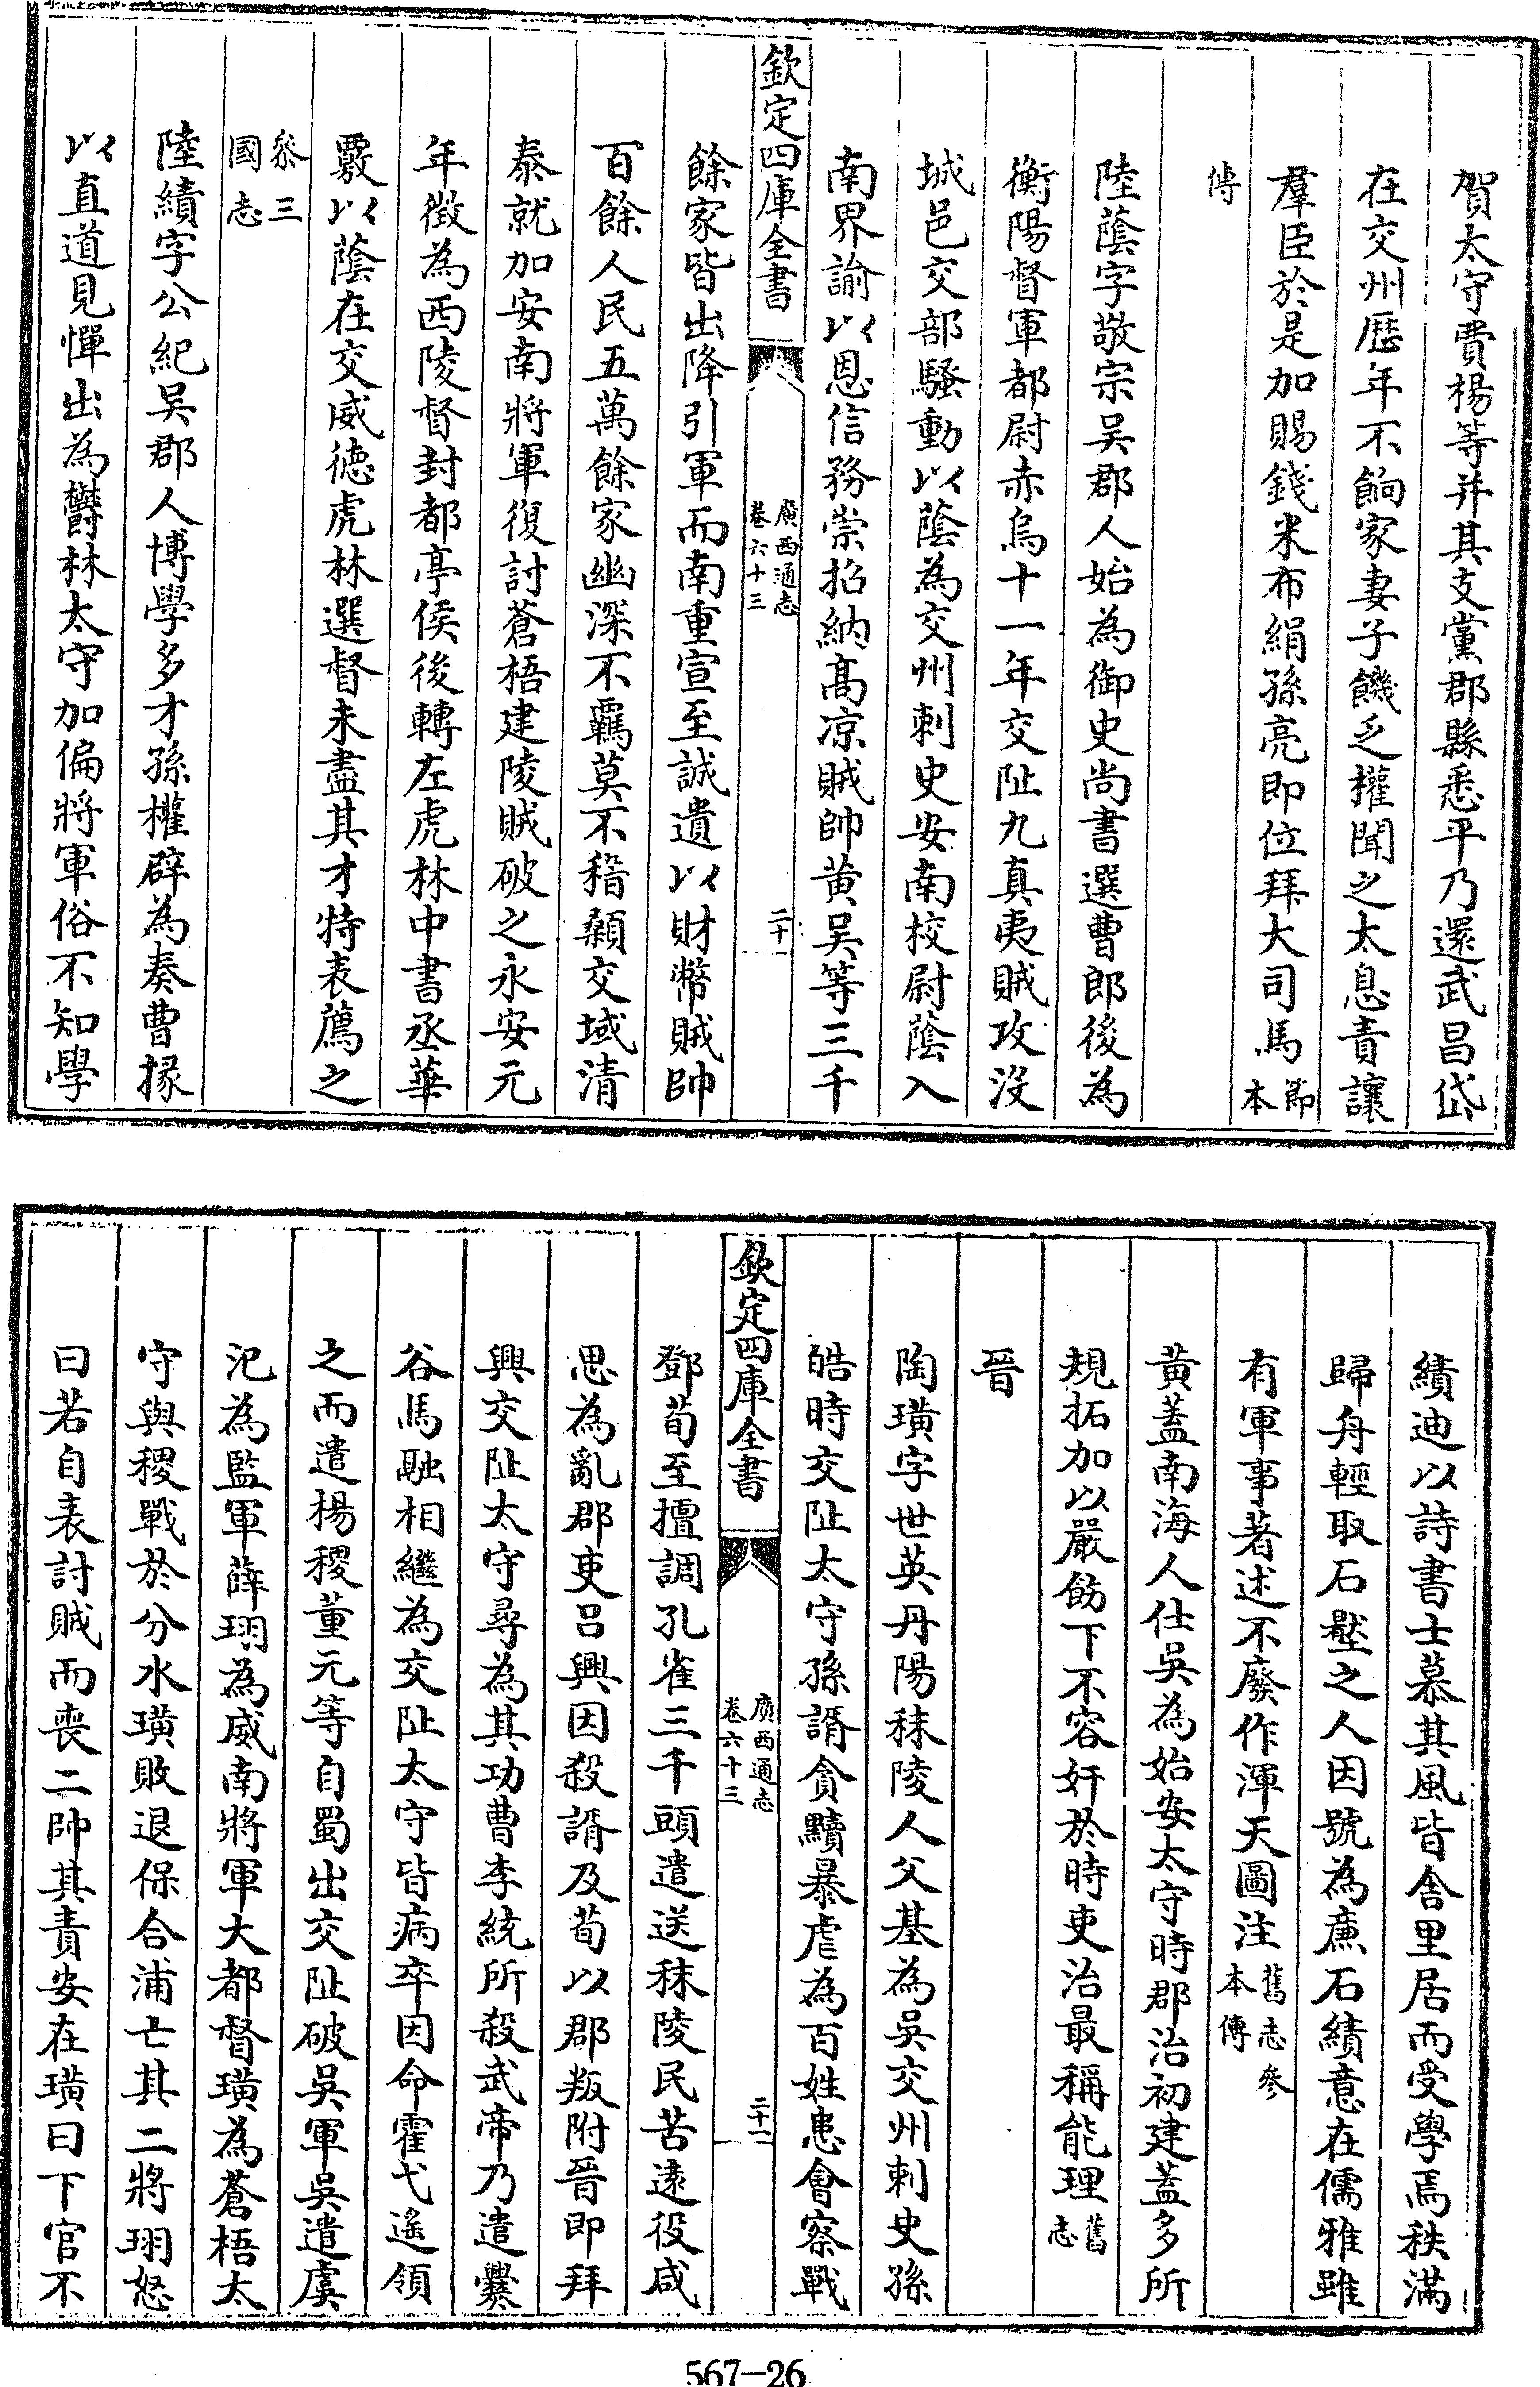 賀太守費楊等并其支黨郡縣悉平乃還武昌岱
在交州歴年不餉家妻子饑乏權聞之太息責讓
羣臣於是加賜錢米布絹孫亮即位拜大司馬節本
傳
陸蔭字敬宗吴郡人始為御史尚書選曹郎後為
衡陽督軍都尉赤烏十一年交阯九真夷賊攻没
城邑交部騷動以蔭為交州刺史安南校尉蔭入
南界諭以恩信務崇招納髙凉賊帥黄吴等三千
欽定四庫全書
廣西通志
卷六十三
二十
餘家皆出降引軍而南重宣至誠遺以財幣賊帥
百餘人民五萬餘家幽深不羈莫不稽顙交域清
泰就加安南將軍復討蒼梧建陵賊破之永安元
年徴為西陵督封都亭侯後轉左虎林中書丞華
覈以蔭在交威徳虎林選督未盡其才特表薦之
叅三
國志
陸績字公紀吴郡人博學多才孫權辟為奏曹掾
以直道見憚出為欝林太守加偏將軍俗不知學
績迪以詩書士慕其風皆舍里居而受學焉秩滿
歸舟輕取石壓之人因號為亷石績意在儒雅雖
有軍事著述不廢作渾天圖注舊志參
本傳
黄蓋南海人仕吴為始安太守時郡治初建蓋多所
規拓加以嚴飭下不容奸於時吏治最稱能理舊志
晉
陶璜字世英丹陽秣陵人父基為吳交州刺史孫
皓時交阯太守孫諝貪黷暴虐為百姓患會察戰
欽定四庫全書
廣西通志
卷六十三
二十一
鄧荀至擅調孔雀三千頭遣送秣陵民苦逺役咸
思為亂郡吏吕興因殺諝及荀以郡叛附晉即拜
興交阯太守尋為其功曹李統所殺武帝乃遣爨
谷馬融相繼為交阯太守皆病卒因命霍弋遥領
之而遣楊稷董元等自蜀出交阯破吳軍吳遣虞
汜為監軍薛珝為威南將軍大都督璜為蒼梧太
守與稷戰於分水璜敗退保合浦亡其二將珝怒
曰若自表討賊而喪二帥其責安在璜曰下官不
567-26